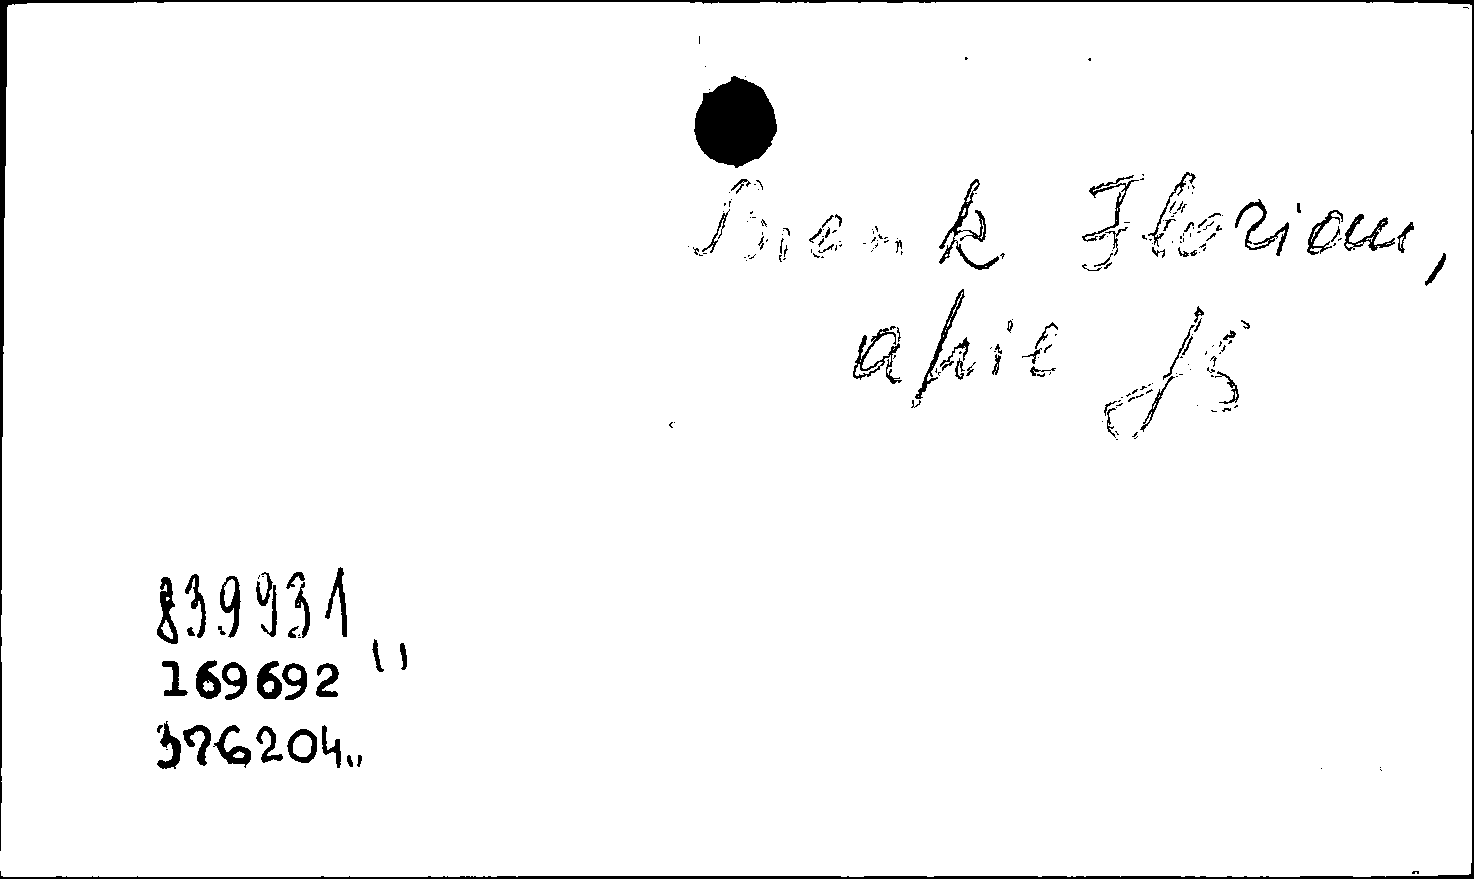 Brenk Florian,
apie jį
839931
169692 "
376204"